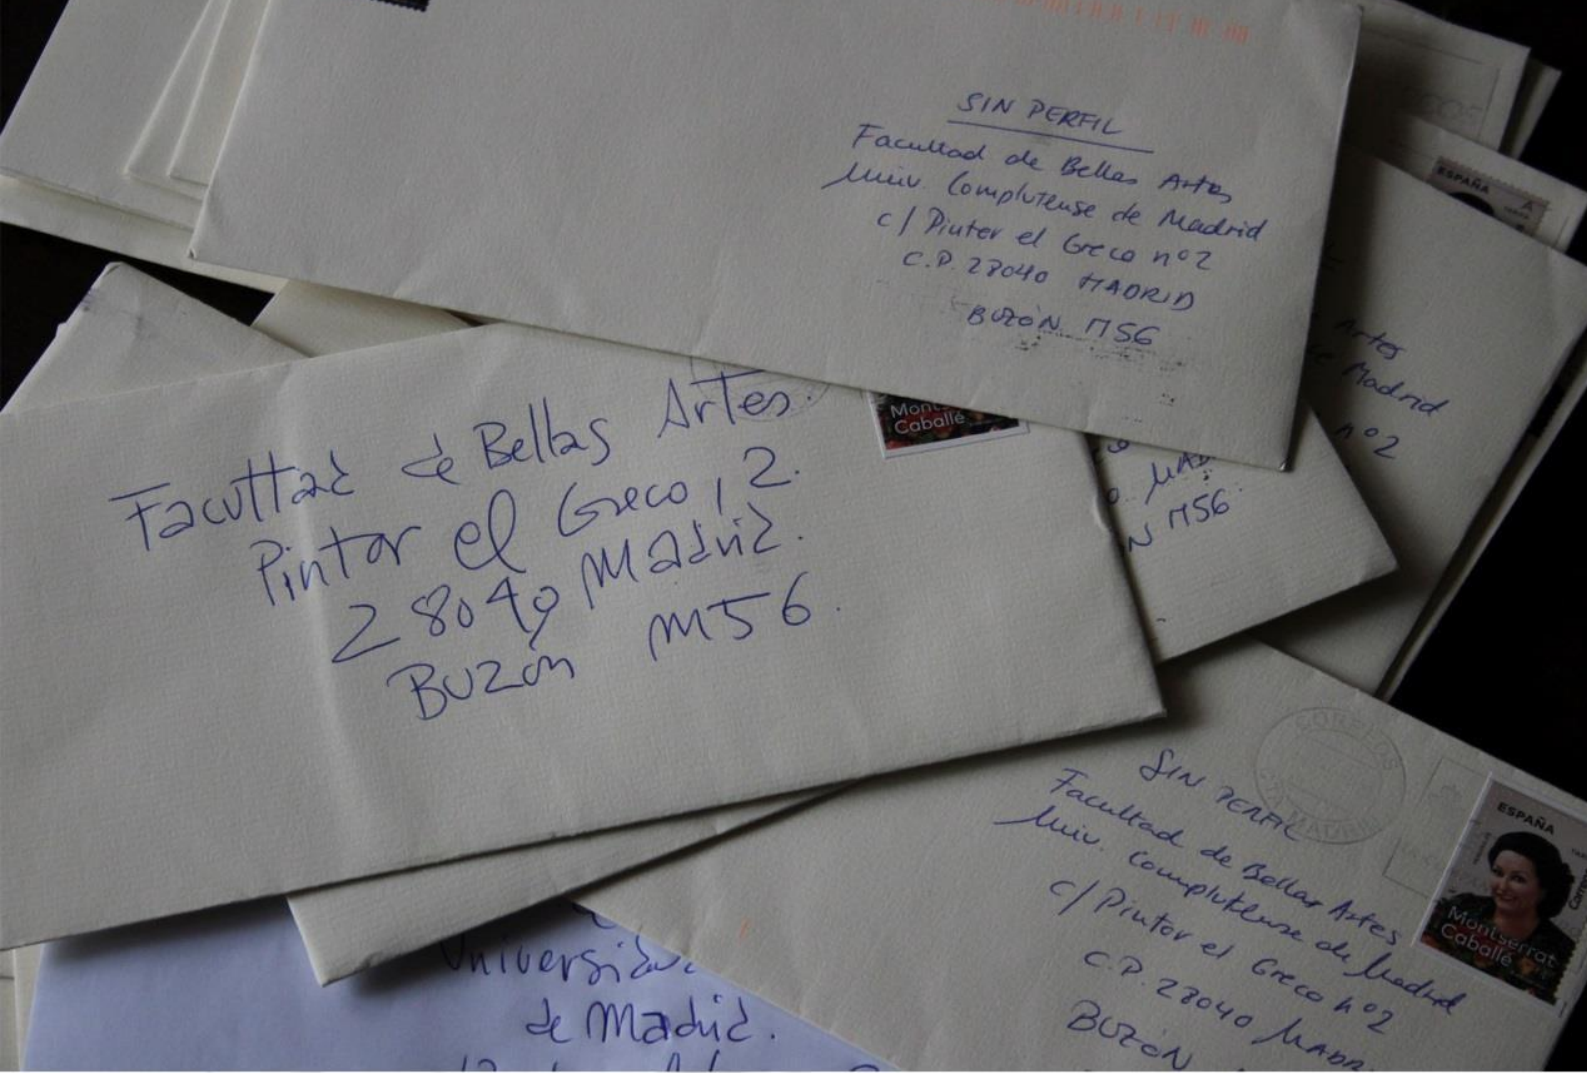 SIN PERFIL
Facultad de Bellas Artes
Univ. Complutense de Madrid
c/ Pintor el Greco nº2
C.P. 28040 MADRID
BUZÓN M56
ESPAÑA
A
Artes
Madrid
nº2
N M56
Montserrat
Caballé
Facultad de Bellas Artes
Pintor el Greco, 2.
28040 Madrid.
Buzón M56.
CORREOS
MADRID
SIN PERFIL
Facultad de Bellas Artes
Univ. Complutense de Madrid
c/ Pintor el Greco nº2
C.P. 28040 MADR
BUZÓN
ESPAÑA
Montserrat
Caballé
Universida
de Madrid.